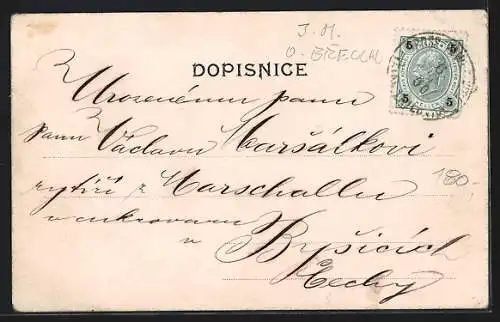 J. M.
O-BŘECLAV
DOPISNICE
5 5
5 5
Urozenému panu
panu Václavu Maršálkovi
rytíři z Marschallu
v cukrovaru
v Byšicích
Čechy
180,-